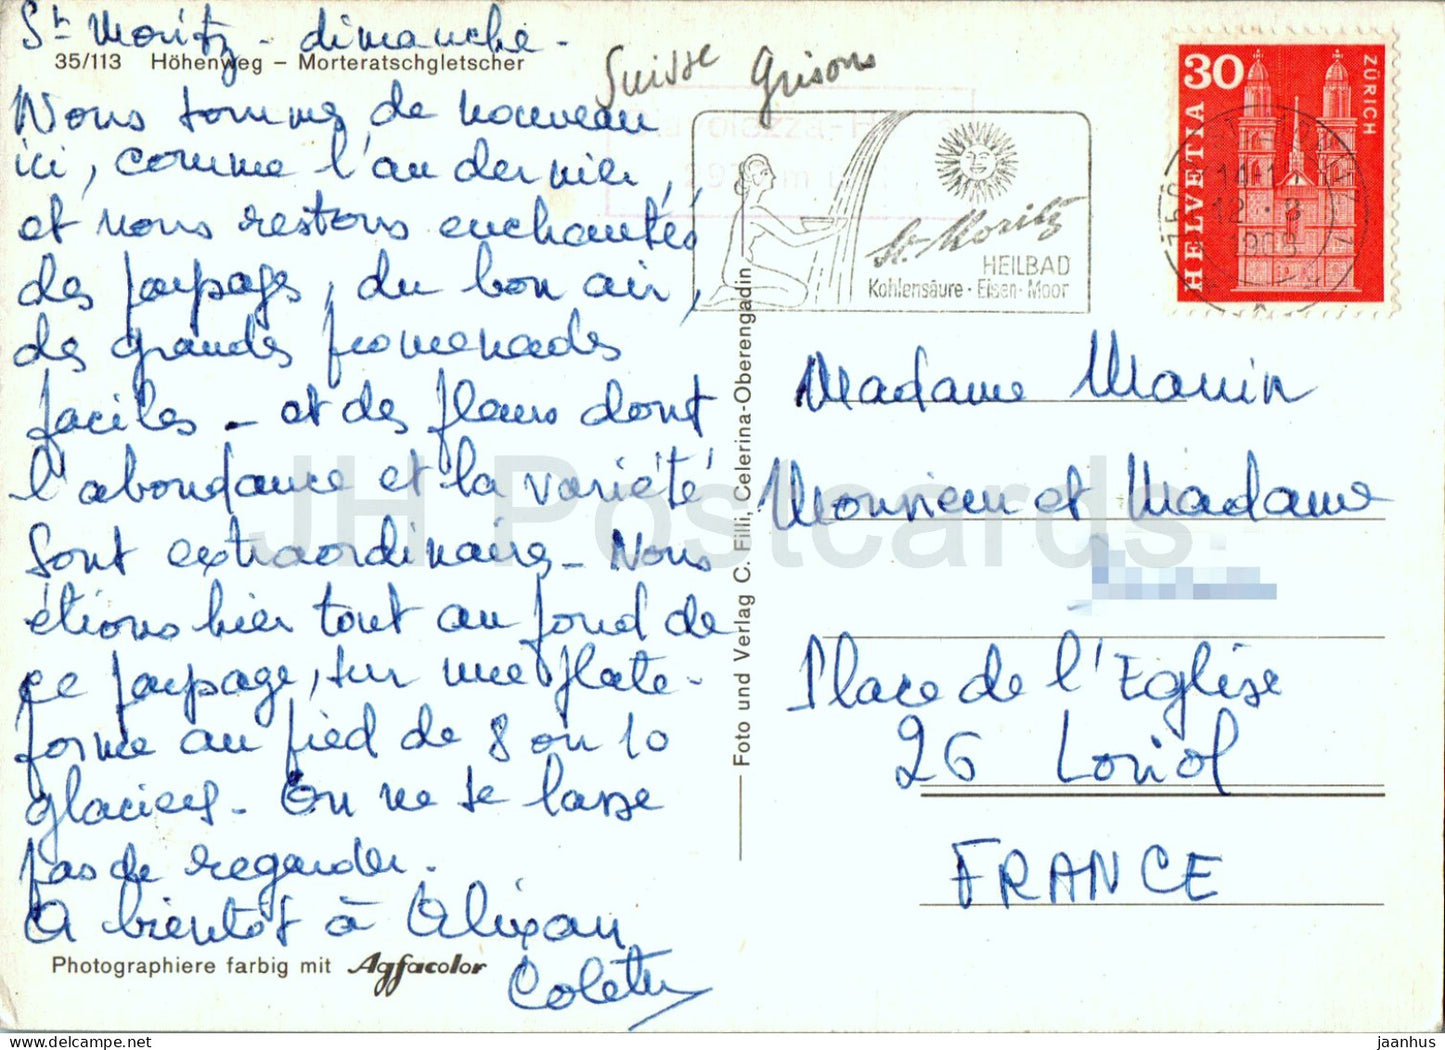 St Moritz - dimanche -
35/113 Höhenweg – Morteratschgletscher
Nous sommes de nouveau
ici, comme l'an dernier,
et nous restons enchantés
des paysages, du bon air,
des grandes promenades
faciles - et des fleurs dont
l'abondance et la variété
sont extraordinaires - Nous
étions hier tout au fond de
ce paysage, sur une plate-
forme au pied de 8 ou 10
glaciers - On ne se lasse
pas de regarder.
A bientôt à Alixan
Colette
Photographiere farbig mit Agfacolor
Suisse Grisons
2973 m
St. Moritz
HEILBAD
Kohlensäure · Eisen · Moor
30
HELVETIA
ZÜRICH
12.-8
Foto und Verlag C. Filli, Celerina-Oberengadin
Madame
Monsieur et Madame
Place de l'Eglise
26 Loriol
FRANCE
JH Postcards
jaanhus © www.delcampe.net